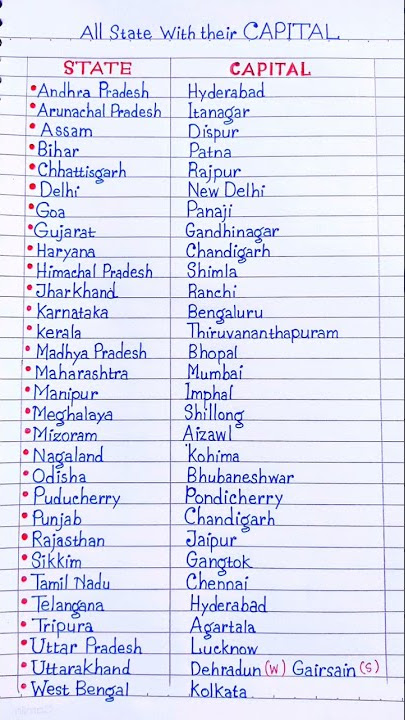 All State With their CAPITAL
STATE CAPITAL
Andhra Pradesh Hyderabad
Arunachal Pradesh Itanagar
Assam Dispur
Bihar Patna
Chhattisgarh Rajpur
Delhi New Delhi
Goa Panaji
Gujarat Gandhinagar
Haryana Chandigarh
Himachal Pradesh Shimla
Jharkhand Ranchi
Karnataka Bengaluru
Kerala Thiruvananthapuram
Madhya Pradesh Bhopal
Maharashtra Mumbai
Manipur Imphal
Meghalaya Shillong
Mizoram Aizawl
Nagaland Kohima
Odisha Bhubaneshwar
Puducherry Pondicherry
Punjab Chandigarh
Rajasthan Jaipur
Sikkim Gangtok
Tamil Nadu Chennai
Telangana Hyderabad
Tripura Agartala
Uttar Pradesh Lucknow
Uttarakhand Dehradun (W) Gairsain (S)
West Bengal Kolkata